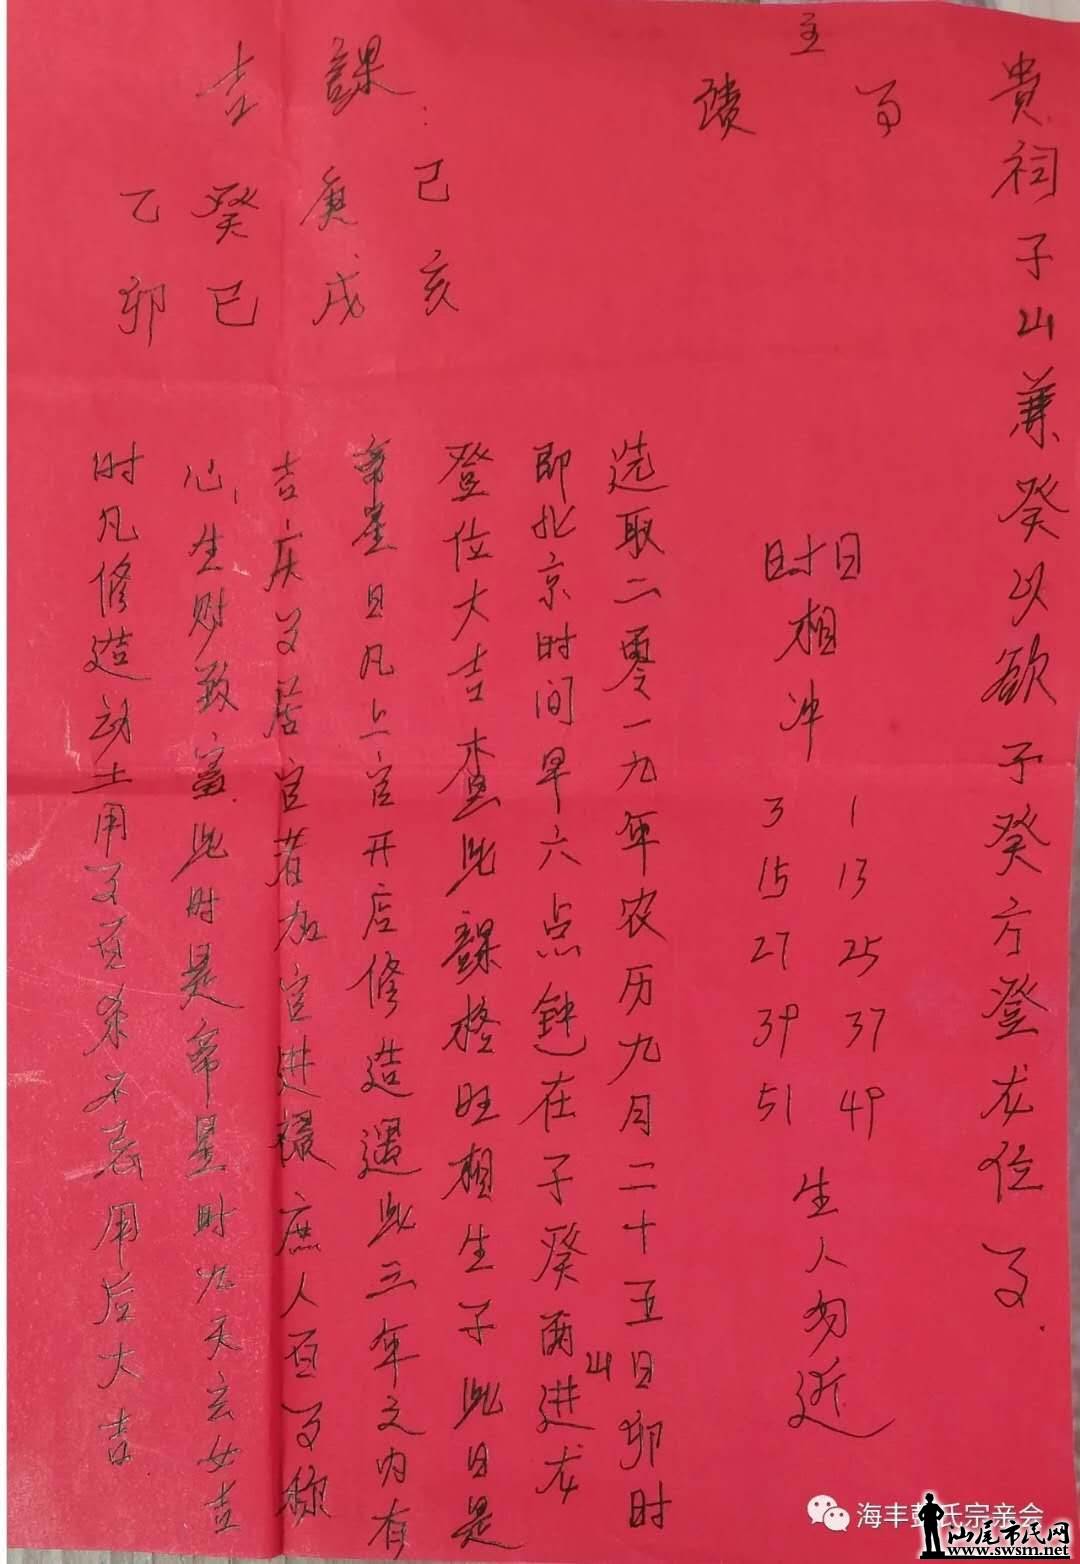 貴祠子山兼癸以欲予癸方登龙位了.
主
馈 了
日 1 13 25 37 49
时 3 15 27 39 51
相冲
生人勿近
选取二零一九年农历九月二十五日卯时
即北京时间早六点钟在子癸两山进龙
登位大吉查此課格旺相生子此日是
帝星日凡上官开店修造遇此三年之内有
吉庆又居官者加官进禄庶人百了称
心,生财致富此时是帝星时九天玄女吉
时凡修造动土用了百杀不忌用后大吉
吉課
己亥
庚戌
癸巳
乙卯
海丰彭氏宗亲会
汕尾市民网
www.swsm.net